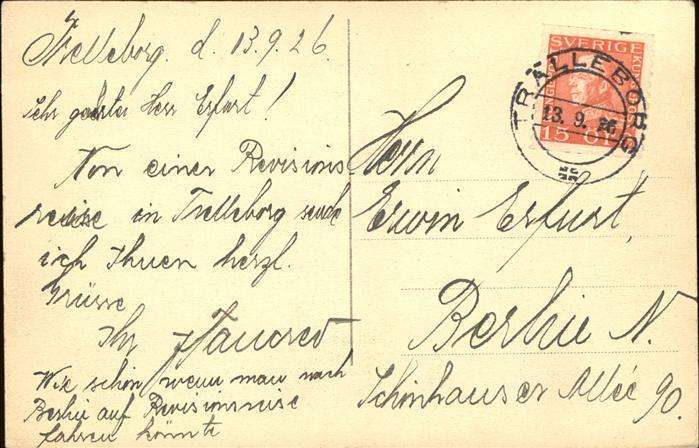 Trelleborg. d. 13.9.26.
Sehr geehrter Herr Erfurt!
Von einer Revisions
reise in Trelleborg sende
ich Ihnen herzl.
Grüsse
Ihr
Wie schön wenn man nach
Berlin auf Revisionsreise
fahren könnte
SVERIGE
15
TRÄLLEBORG
13. 9. 26
Herrn
Erwin Erfurt,
Berlin N.
Schönhauser Allée 90.